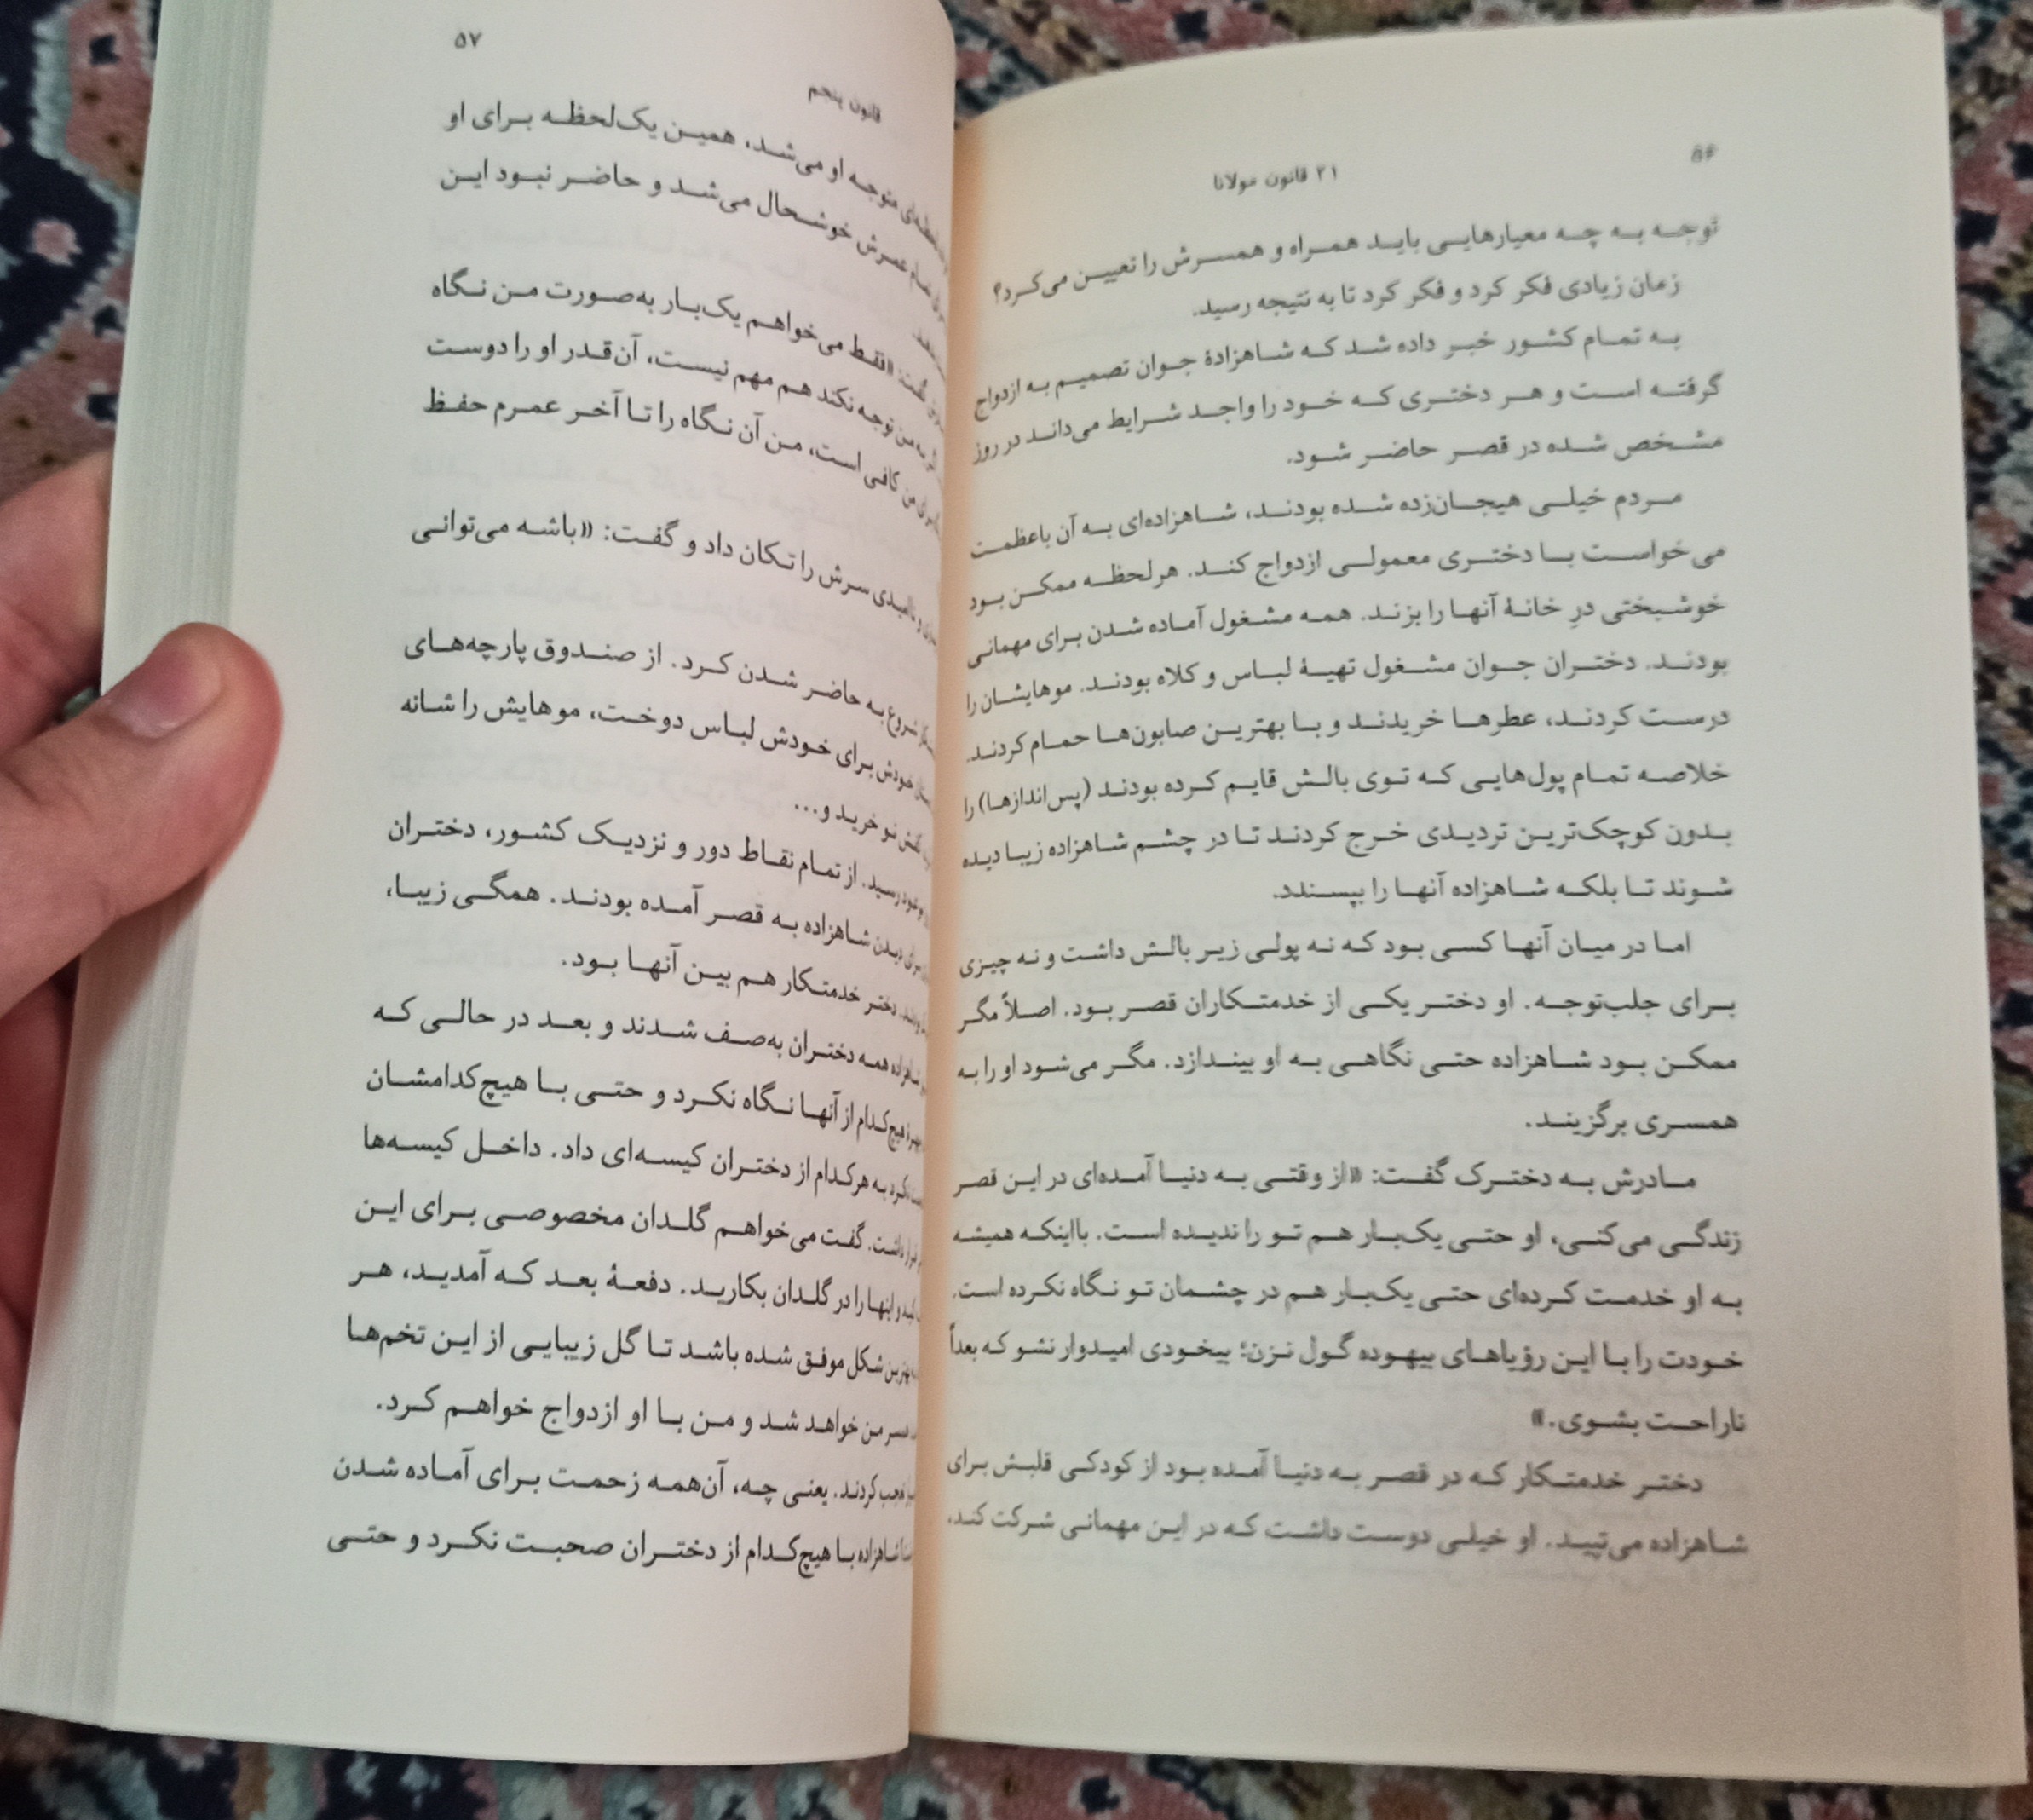 ۵۶
۲۱ قانون مولانا
توجه به چه معیارهایی باید همراه و همسرش را تعیین می‌کرد؟
زمان زیادی فکر کرد و فکر کرد تا به نتیجه رسید.
به تمام کشور خبر داده شد که شاهزادۀ جوان تصمیم به ازدواج
گرفته است و هر دختری که خود را واجد شرایط می‌داند در روز
مشخص شده در قصر حاضر شود.
مردم خیلی هیجان‌زده شده بودند، شاهزاده‌ای به آن باعظمت
می‌خواست با دختری معمولی ازدواج کند. هرلحظه ممکن بود
خوشبختی درِ خانۀ آنها را بزند. همه مشغول آماده شدن برای مهمانی
بودند. دختران جوان مشغول تهیۀ لباس و کلاه بودند. موهایشان را
درست کردند، عطرها خریدند و با بهترین صابون‌ها حمام کردند.
خلاصه تمام پول‌هایی که توی بالش قایم کرده بودند (پس‌اندازها) را
بدون کوچک‌ترین تردیدی خرج کردند تا در چشم شاهزاده زیبا دیده
شوند تا بلکه شاهزاده آنها را بپسندد.
اما در میان آنها کسی بود که نه پولی زیر بالش داشت و نه چیزی
برای جلب‌توجه. او دختر یکی از خدمتکاران قصر بود. اصلاً مگر
ممکن بود شاهزاده حتی نگاهی به او بیندازد. مگر می‌شود او را به
همسری برگزیند.
مادرش به دخترک گفت: «از وقتی به دنیا آمده‌ای در این قصر
زندگی می‌کنی، او حتی یک‌بار هم تو را ندیده است. بااینکه همیشه
به او خدمت کرده‌ای حتی یک‌بار هم در چشمان تو نگاه نکرده است.
خودت را با این رؤیاهای بیهوده گول نزن؛ بیخودی امیدوار نشو که بعداً
ناراحت بشوی.»
دختر خدمتکار که در قصر به دنیا آمده بود از کودکی قلبش برای
شاهزاده می‌تپید. او خیلی دوست داشت که در این مهمانی شرکت کند.
۵۷
قانون پنجم
متوجه او می‌شد، همین یک‌لحظه برای او
عمرش خوشحال می‌شد و حاضر نبود این
گفت: «فقط می‌خواهم یک‌بار به‌صورت من نگاه
به من توجه نکند هم مهم نیست، آن‌قدر او را دوست
من کافی است، من آن نگاه را تا آخر عمرم حفظ
ناامیدی سرش را تکان داد و گفت: «باشه می‌توانی
شروع به حاضر شدن کرد. از صندوق پارچه‌های
خودش برای خودش لباس دوخت، موهایش را شانه
کفش نو خرید و...
رسید. از تمام نقاط دور و نزدیک کشور، دختران
برای دیدن شاهزاده به قصر آمده بودند. همگی زیبا،
دختر خدمتکار هم بین آنها بود.
شاهزاده همه دختران به‌صف شدند و بعد در حالی که
هیچ‌کدام از آنها نگاه نکرد و حتی با هیچ‌کدامشان
نکرد به هرکدام از دختران کیسه‌ای داد. داخل کیسه‌ها
داشت. گفت می‌خواهم گلدان مخصوصی برای این
و اینها را در گلدان بکارید. دفعۀ بعد که آمدید، هر
بهترین شکل موفق شده باشد تا گل زیبایی از این تخم‌ها
همسر من خواهد شد و من با او ازدواج خواهم کرد.
تعجب کردند. یعنی چه، آن‌همه زحمت برای آماده شدن
شاهزاده با هیچ‌کدام از دختران صحبت نکرد و حتی